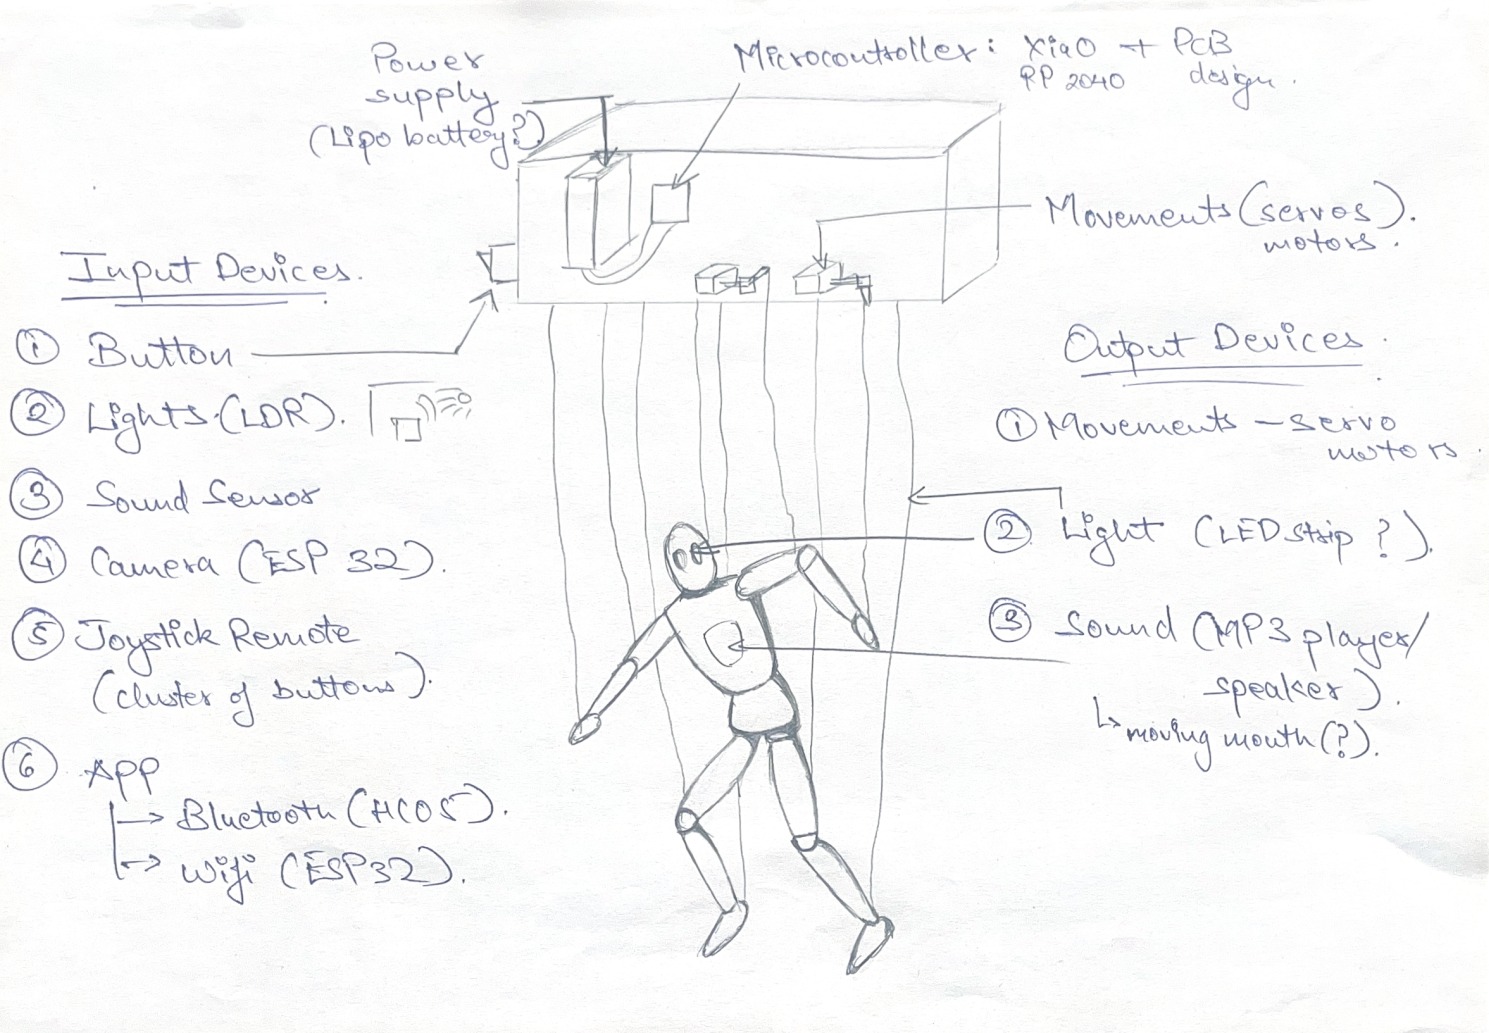 Power
supply
(Lipo battery?)
Microcontroller: XiaO + PCB
RP 2040 design.
Movements (servos).
motors.
Input Devices.
① Button
② Lights (LDR).
③ Sound Sensor
④ Camera (ESP 32).
⑤ Joystick Remote
(cluster of buttons).
⑥ APP
→ Bluetooth (HC05).
→ Wifi (ESP32).
Output Devices.
① Movements - servo
motors.
② Light (LED strip ?).
③ Sound (MP3 player/
speaker).
↳ moving mouth (?).